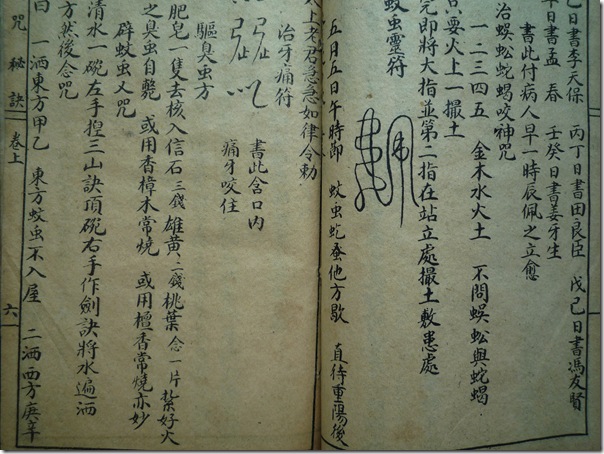 日書李天保 丙丁日書田良臣 戊己日書馮友賢
辛日書孟春 壬癸日書姜牙生
書此付病人早一時辰佩之立愈
治蜈蚣蛇蝎咬神咒
一二三四五 金木水火土 不問蜈蚣與蛇蝎
只要火上一撮土
完即將大指並第二指在站立處撮土敷患處
蚊虫靈符
五月五日午時節 蚊虫虼蚤他方歇 直待重陽後
上老君急急如律令勅
治牙痛符
書此含口內
痛牙咬住
驅臭虫方
肥皂一隻去核入信石三錢雄黃二錢桃葉念一片紮好火
之臭虫自斃 或用香樟木常燒 或用檀香常燒亦妙
辟蚊虫乂咒
清水一碗左手揑三山訣頂碗右手作劍訣將水遍洒
方然後念咒
曰 一洒東方甲乙 東方蚊虫不入屋 二洒西方庚辛
咒秘訣 卷上 六